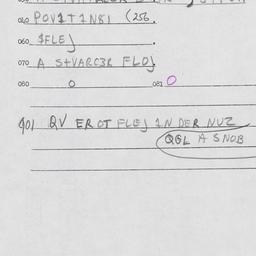 040 POV1T1NS1 (256.
060 $FLEJ.
070 A S+VARC3R FLOJ
080 O 081 O
901 QV ER OT FLEJ 1N DER NUZ
QGL A SNOB